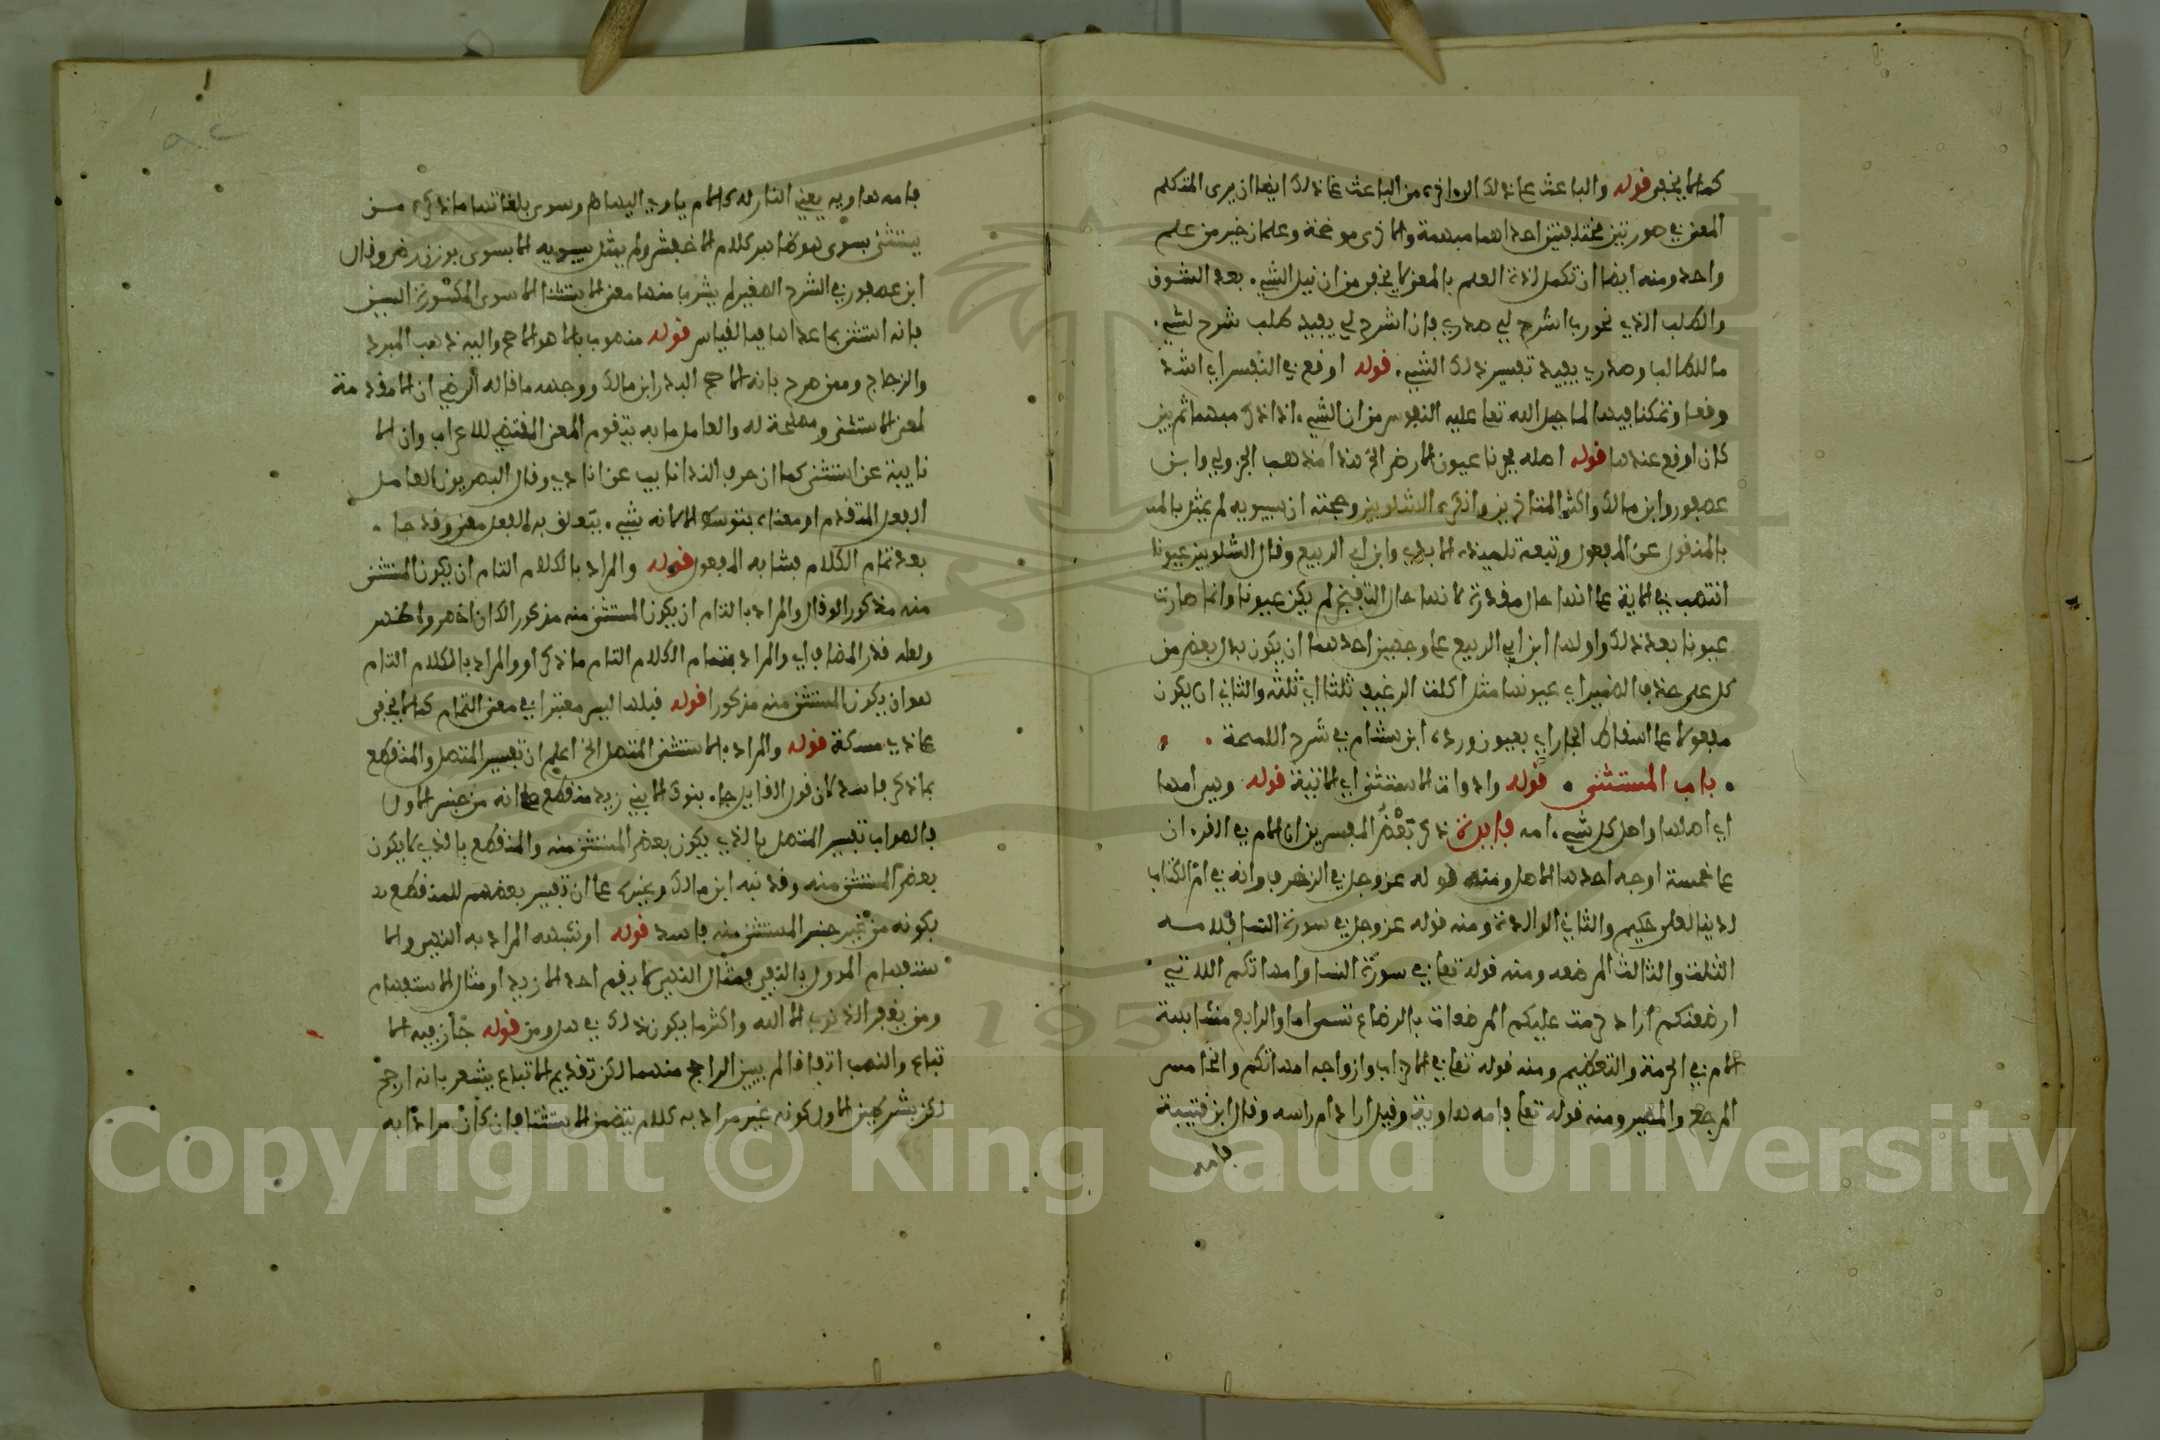 كما لا يخفى قوله والباعث على ذلك الى اخره من الباعث على ذلك ايضا ان يرى المتكلم
المعنى في صورتين مختلفتين احداهما مبهمة والاخرى موضحة وعلمان خير من علم
واحد ومنه ايضا ان تكمل لذة العلم بالمعنى لا يخفى من ان نيل الشيء بعد الشوق
والطلب الذي نحو رب اشرح لي صدري فان اشرح لي يفيد طلب شرح لشيء
ما للطالب وصدري يفيد تفسير ذلك الشيء قوله اوقع في النفس اي اشد
وقعا وتمكنا فيها لما جبل الله تعا عليه النفوس من ان الشيء اذا ذكر مبهما ثم بين
كان اوقع عندها قوله اصله فجرنا عيون الارض الخ هذا مذهب الجزولي وابن
عصفور وابن مالك واكثر المتاخرين وانكره الشلوبين وحجته ان سيبويه لم يمثل بالمنـ
بالمنقول عن المفعول وتبعه تلميذه الابدي وابن ابي الربيع وقال الشلوبين عيونا
انتصب في الاية على انها حال مقدرة لانها حال التفجير لم يكن عيونا وانما صارت
عيونا بعد ذلك واولها ابن ابي الربيع على وجهين احدهما ان يكون بدل بعض من
كل على حذف الضمير اي عيونها مثل اكلت الرغيف ثلثا اي ثلثه والثاني ان يكون
مفعولا على اسقاط الجار اي بعيون ورده ابن هشام في شرح اللمحة
باب المستثنى قوله وادوات الاستثناء اي الاتية قوله وهي امها
اي اصلها واصل كل شيء امه فايدة ذكر بعض المفسرين ان الام في القران
على خمسة اوجه احدها الاصل ومنه قوله عز وجل في الزخرف وانه في ام الكتاب
لدينا لعلي حكيم والثاني الوالدة ومنه قوله عز وجل في سورة النسا فلامه
الثلث والثالث المرضعه ومنه قوله تعا في سورة النسا وامهاتكم اللاتي
ارضعنكم اراد حرمت عليكم المرضعات بالرضاع تسمى اما والرابع مشابهة
الام في الحرمة والتعظيم ومنه قوله تعا في الاحزاب وازواجه امهاتكم والخامس
المرجع والمصير ومنه قوله تعا فامه هاوية وقيل اراد ام راسه وقال ابن قتيبة
فامه
فامه هاويه يعني النار له كالام ياوي اليها قوله وسوى بلغاتها ما ذكره من
يستثنى بسوى هو ظاهر كلام الاخفش ولم يمثل سيبويه الا بسوى بوزن رضى وقال
ابن عصفور في الشرح الصغير لم يشرب منها معنى الاستثنا الا سوى المكسورة السين
فانه استثنى بما عداها فبالقياس قوله منصوب بالا هو الاصح واليه ذهب المبرد
والزجاج وممن صرح بانه الاصح البدر ابن مالك ووجهه ما قاله الرضي ان الا مقدمة
لمعنى الاستثنى ومصلحة له والعامل ما به يتقوم المعنى المقتضي للاعراب وان الا
نايبة عن استثنى كما ان حرف الندا نايب عن انادي وقال البصريون العامل
الفعل المتقدم او معناه بتوسط الا لانه شيء يتعلق بالفعل معنى وقد جا
بعد تمام الكلام فشابه المفعول قوله والمراد بالكلام التام ان يكون المستثنى
منه مذكورا لو قال والمراد بالتام ان يكون المستثنى منه مذكورا لكان اخصر واظهر
ولعله قدر المضاف اي والمراد بتمام الكلام التام ما ذكر او والمراد بالكلام التام
هو ان يكون المستثنى منه مذكورا قوله قبلها ليس معتبرا في معنى التمام كما لا يخفى
على ذي مسكة قوله والمراد بالاستثنى المتصل الخ اعلم ان تفسير المتصل والمنقطع
بما ذكر فاسد لان قول القايل جا بنوك الا بني زيد منقطع مع انه من جنس الاول
فالصواب تفسير المتصل بالذي يكون بعض المستثنى منه والمنقطع بالذي لا يكون
بعض المستثنى منه وقد نبه ابن مالك وغيره على ان تفسير بعضهم للمنقطع بـ
بكونه من غير جنس المستثنى منه فاسد قوله او شبهه المراد به النهي والا
ستفهام المؤول بالنفي فمثال النهي لا يقم احد الا زيد او مثال الاستفهام
ومن يغفر الذنوب الا الله واكثر ما يكون ذلك في هل ومن قوله جاز فيه الا
تباع والنصب اتفاقا لم يبين الراجح منهما لكن تقديم الاتباع يشعر بانه ارجح
لكن بشرطين الاول كونه غير مراد به كلام يتضمن الاستثنا فان كان مرادا به
Copyright © King Saud University
1957